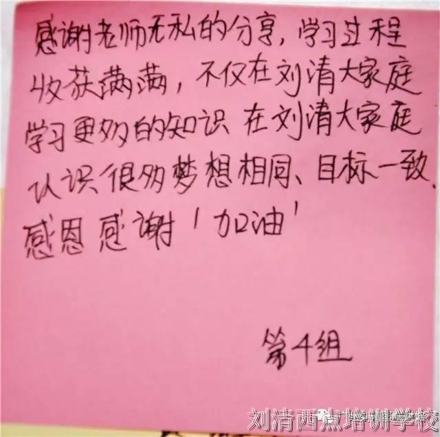 感谢老师无私的分享,学习过程
收获满满,不仅在刘清大家庭
学习更多的知识 在刘清大家庭
认识很多梦想相同、目标一致.
感恩感谢！加油！
第4组
刘清西点培训学校